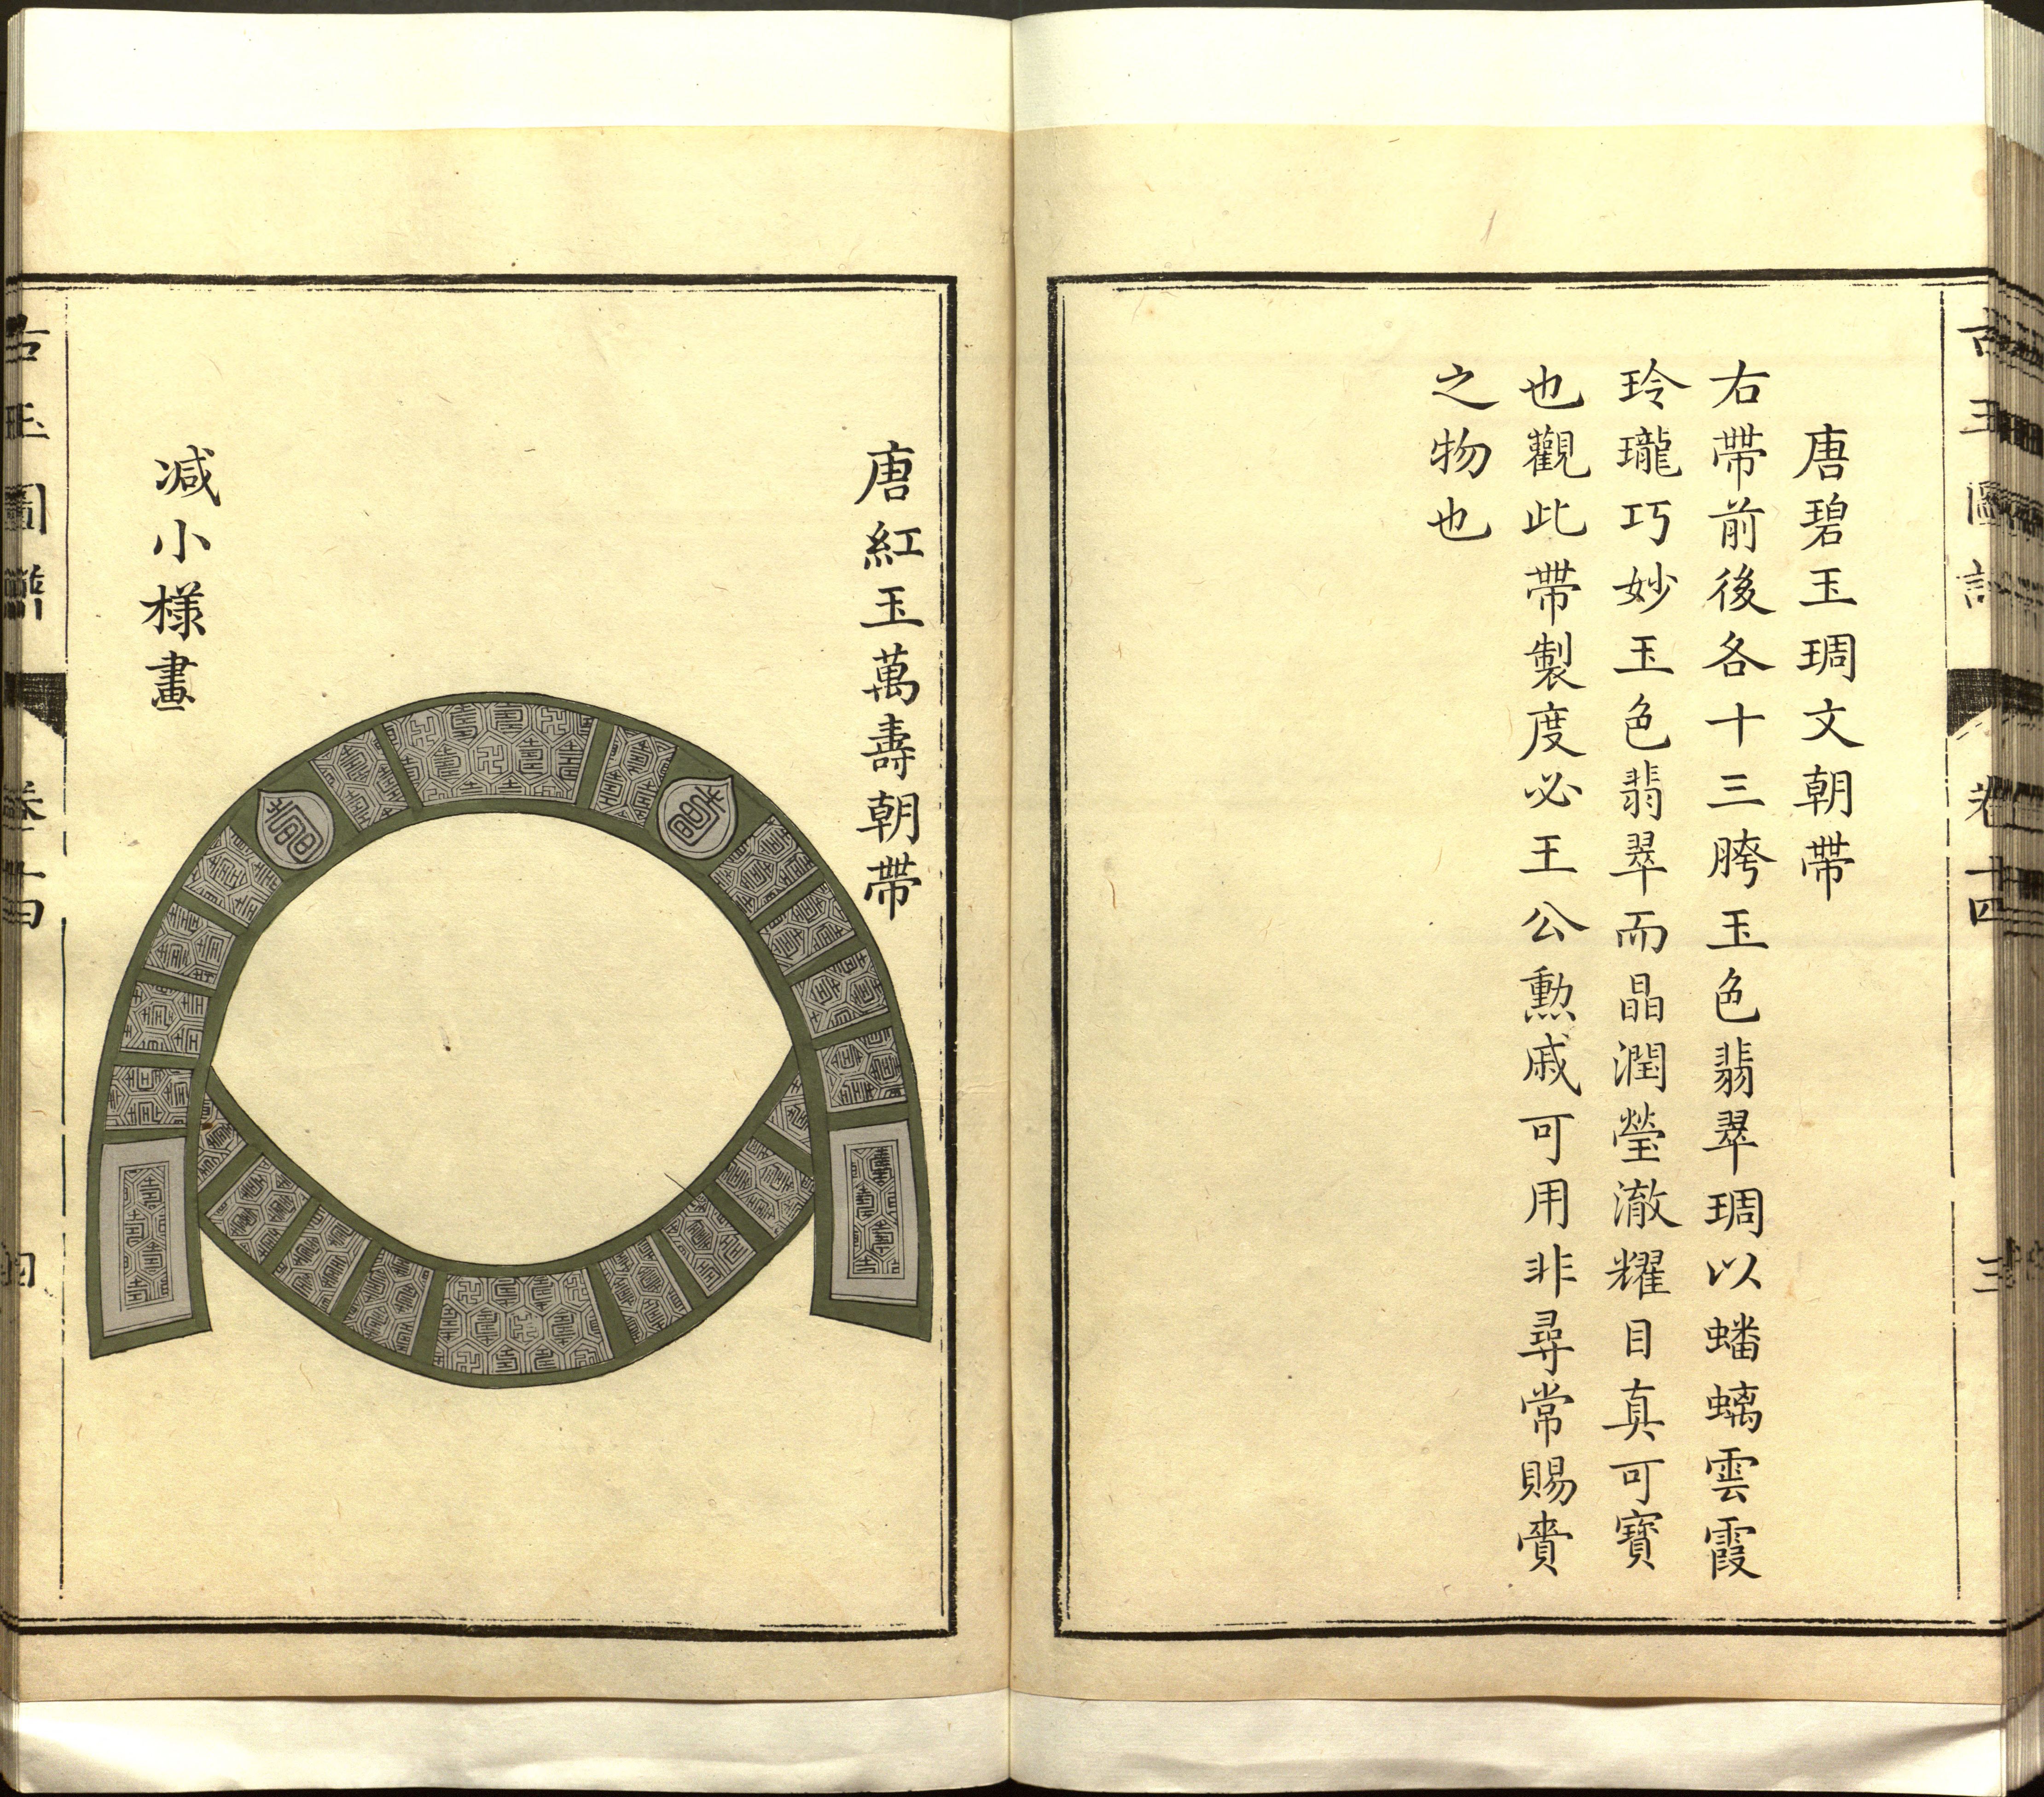 唐碧玉琱文朝帶
右帶前後各十三胯玉色翡翠琱以蟠螭雲霞
玲瓏巧妙玉色翡翠而晶潤瑩澈耀目真可寶
也觀此帶製度必王公勲戚可用非尋常賜賚
之物也
唐紅玉萬壽朝帶
减小様畫
古玉圖譜
卷十四
四